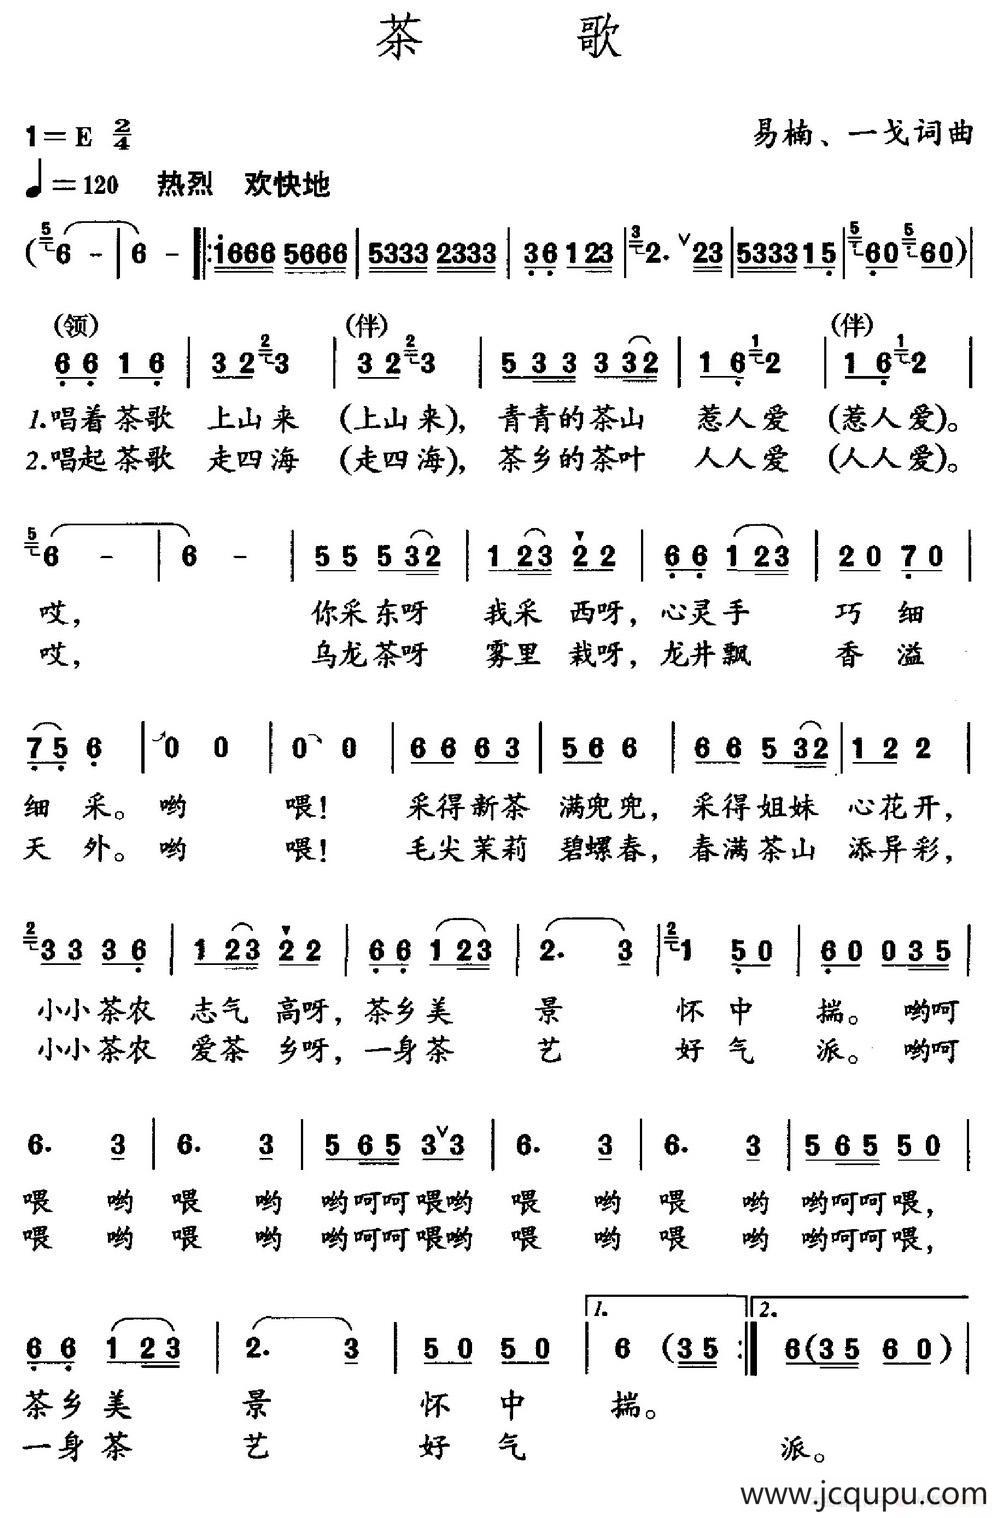 茶 歌
1=E 2/4
易楠、一戈词曲
♩=120 热烈 欢快地
( 5 6 - | 6 - ‖: i666 5666 | 5333 2333 | 36 123 | 3 2. ∨ 23 | 5333 15 | 5 60 5 60 ) |
(领) (伴) (伴)
66 16 | 32 2 3 | 32 2 3 | 533 332 | 16 1 2 | 16 1 2 |
1.唱着茶歌 上山来 (上山来), 青青的茶山 惹人爱 (惹人爱)。
2.唱起茶歌 走四海 (走四海), 茶乡的茶叶 人人爱 (人人爱)。
5 6 - | 6 - | 55 532 | 123 22 | 66 123 | 20 70 |
哎, 你采东呀 我采 西呀, 心灵手 巧 细
哎, 乌龙茶呀 雾里 栽呀, 龙井飘 香 溢
75 6 | 0 0 | 0 0 | 66 63 | 56 6 | 66 532 | 12 2 |
细 采。 哟 喂! 采得新茶 满兜兜, 采得姐妹 心花开,
天 外。 哟 喂! 毛尖茉莉 碧螺春, 春满茶山 添异彩,
2 33 36 | 123 22 | 66 123 | 2. 3 | 2 1 50 | 60 035 |
小小茶农 志气 高呀, 茶乡美 景 怀中 揣。 哟呵
小小茶农 爱茶 乡呀, 一身茶 艺 好气 派。 哟呵
6. 3 | 6. 3 | 565 3∨3 | 6. 3 | 6. 3 | 565 50 |
喂 哟 喂 哟 哟呵呵喂哟 喂 哟 喂 哟 哟呵呵喂,
喂 哟 喂 哟 哟呵呵喂哟 喂 哟 喂 哟 哟呵呵喂,
1. 2.
66 123 | 2. 3 | 50 50 | 6 (35 :‖ 6(35 60) |
茶乡美 景 怀 中 揣。
一身茶 艺 好 气 派。
www.jcqupu.com